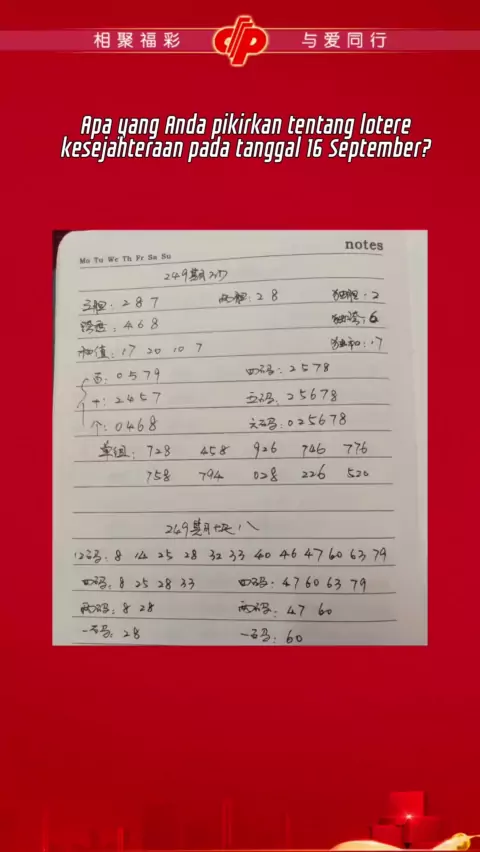 相聚福彩 与爱同行
Apa yang Anda pikirkan tentang lotere
kesejahteraan pada tanggal 16 September?
Mo Tu We Th Fr Sa Su notes
249期
三胆: 2 8 7 两胆: 2 8 独胆: 2
跨度: 4 6 8 独跨: 6
和值: 17 20 10 7 独和: 17
百: 0 5 7 9 四码: 2 5 7 8
十: 2 4 5 7 五码: 2 5 6 7 8
个: 0 4 6 8 六码: 0 2 5 6 7 8
单组: 728 458 926 746 776
758 794 028 226 520
249期 八
12码: 8 14 25 28 32 33 40 46 47 60 63 79
四码: 8 25 28 33 四码: 47 60 63 79
两码: 8 28 两码: 47 60
一码: 28 一码: 60